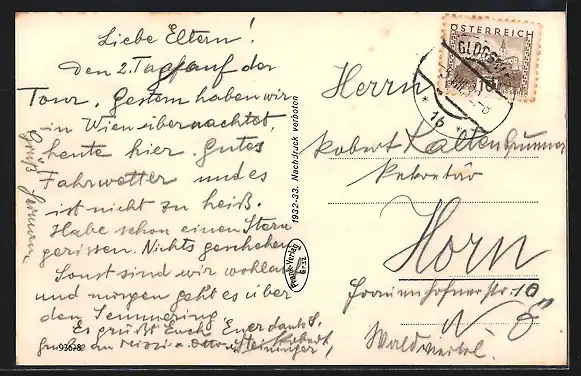 Liebe Eltern!
Den 2. Tag auf der
Tour. Gestern haben wir
in Wien übernachtet,
heute hier. Gutes
Fahrwetter und es
ist nicht zu heiß.
Habe schon einen Stern
gerissen. Nichts geschehen
Sonst sind wir wohlauf
und morgen geht es über
den Semmering
Es grüßt Euch Euer dankb. S.
an Mizzi Robert,
Gruß
Heininger
1932-33. Nachdruck verboten
Frank-Verlag
Graz
936/8
ÖSTERREICH
GLOGG
16
Herrn
Robert Kaltenbrunner
Sekretär
Horn
Frauenhofnerstr. 10
N. Ö
Waldviertel.